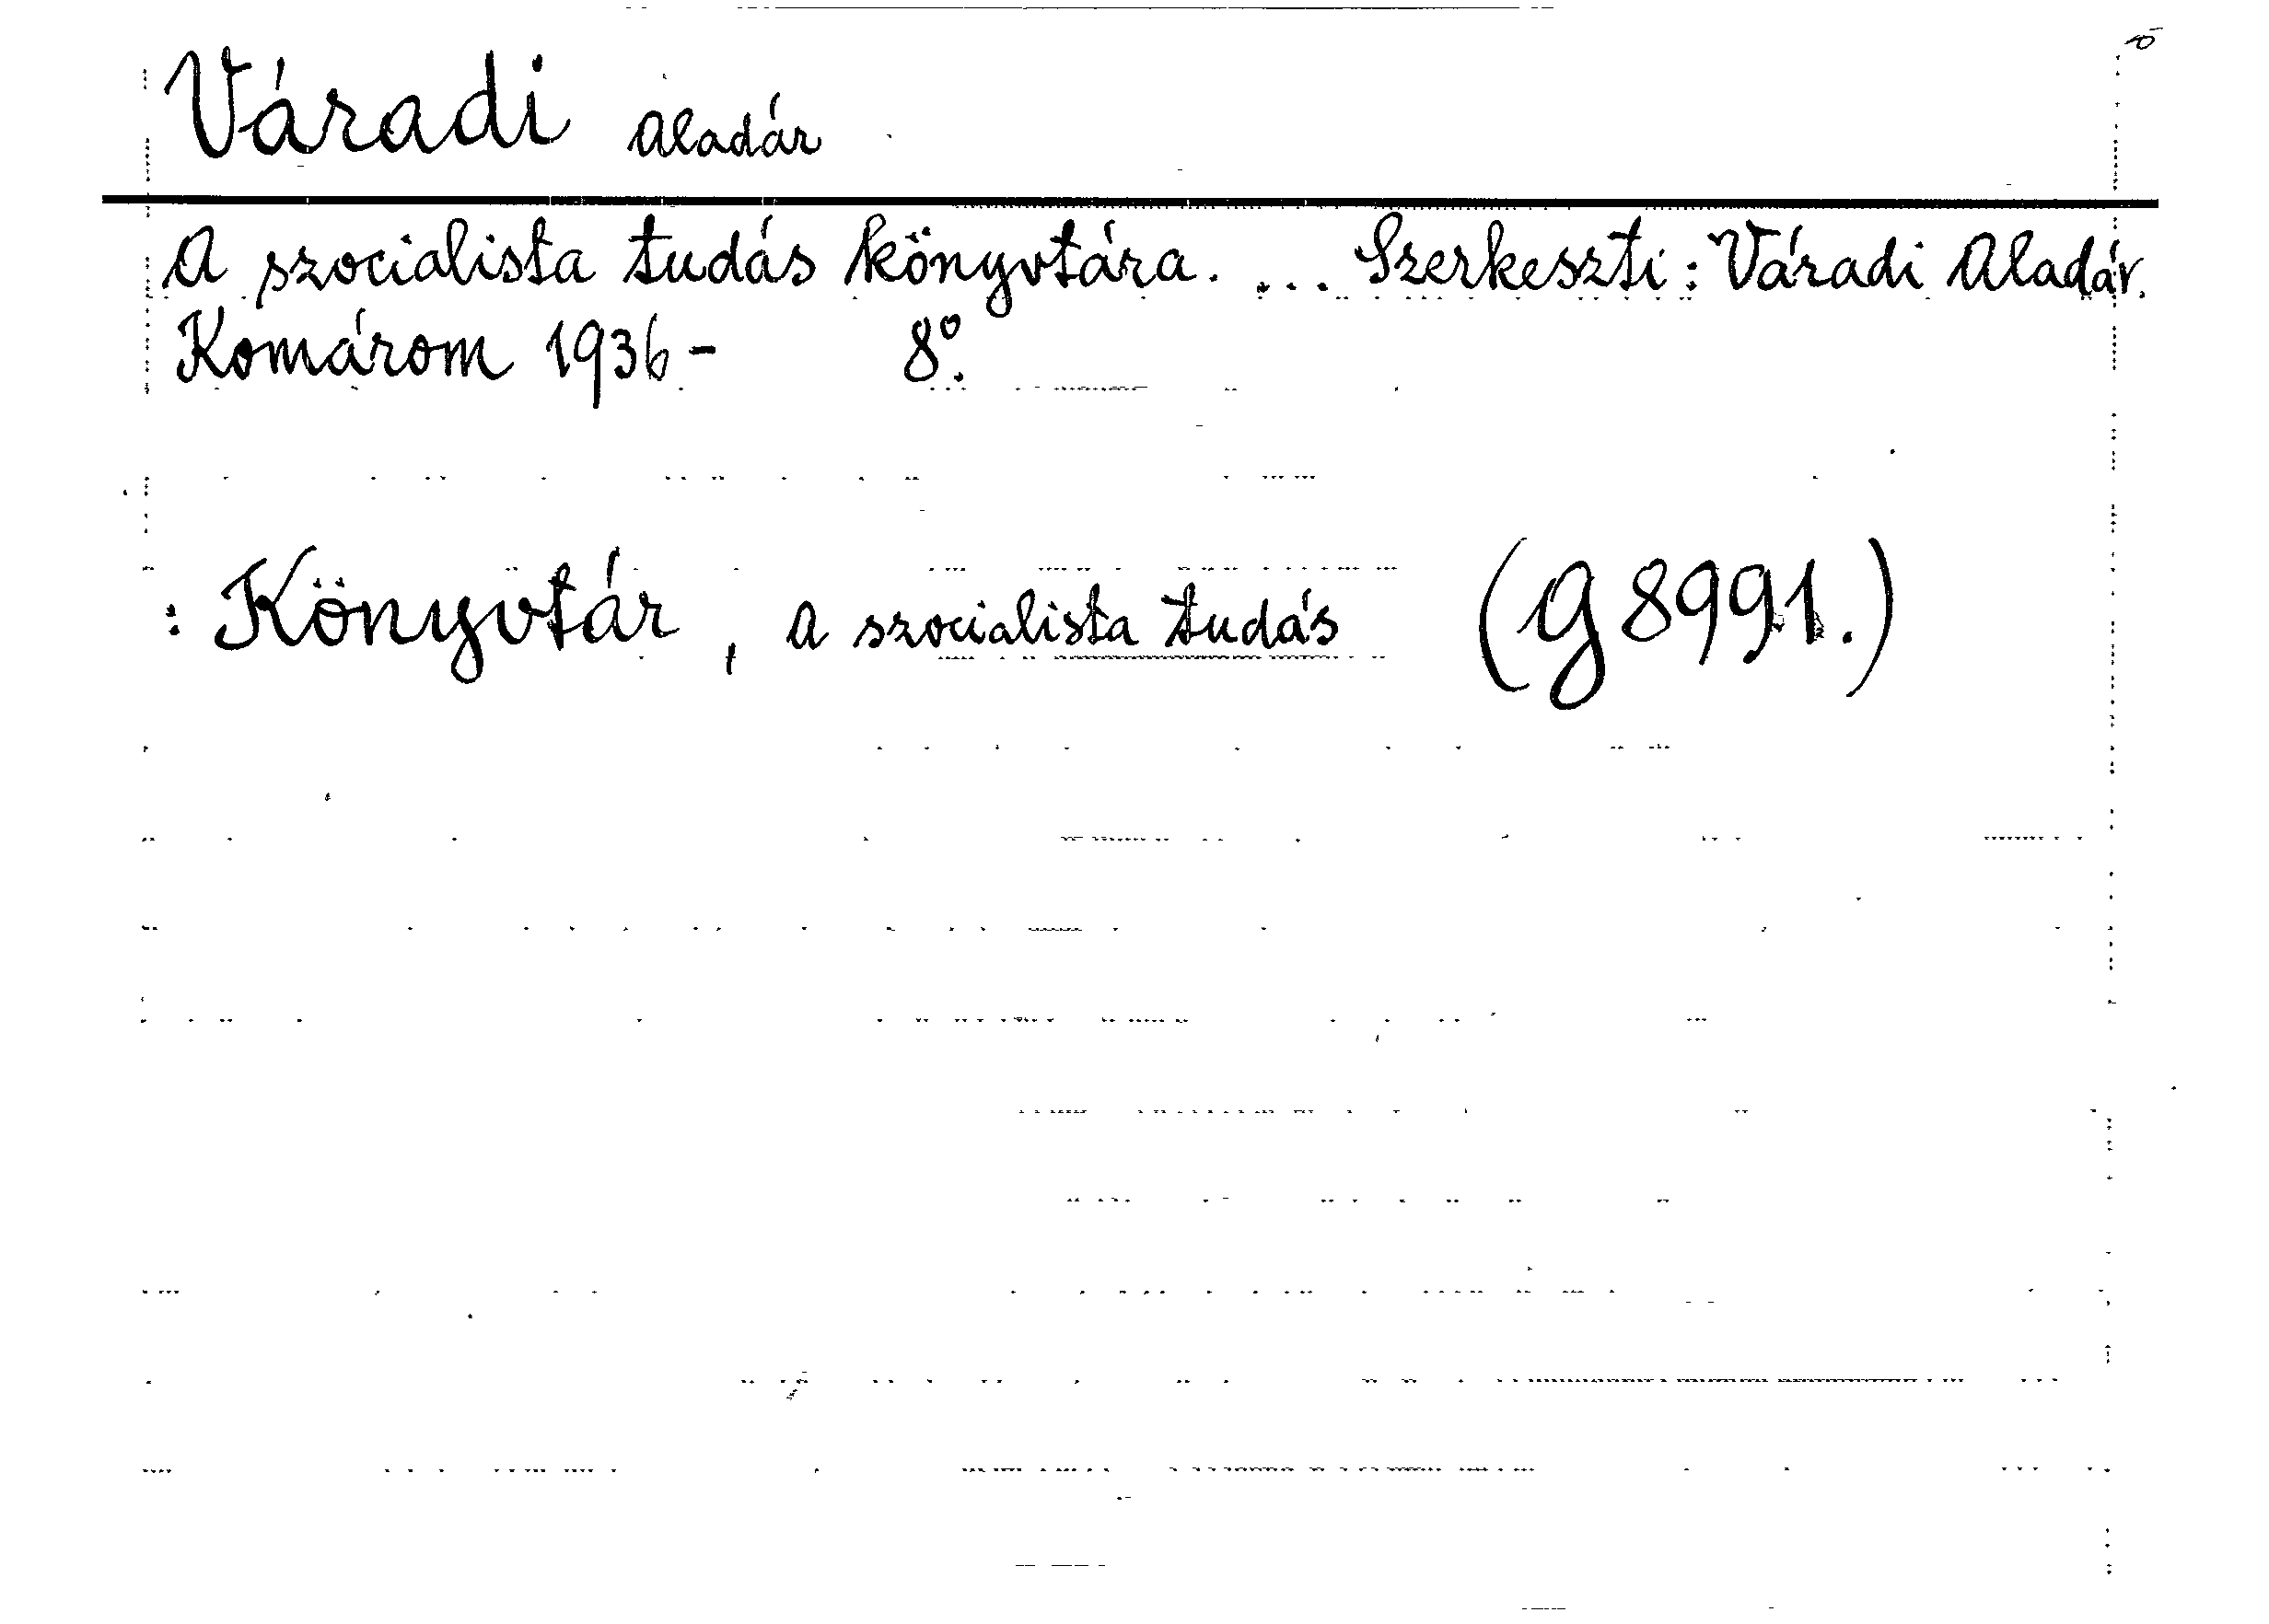 Váradi Aladár
A szocialista tudás könyvtára. ... Szerkeszti: Váradi Aladár.
Komárom 1936- 8°.
: Könyvtár, a szocialista tudás (G 8991.)